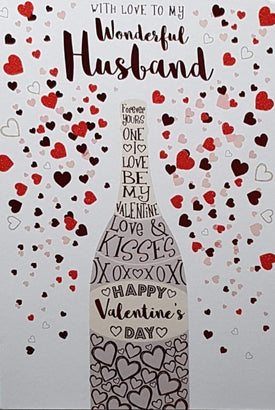 WITH LOVE TO MY
Wonderful
Husband
Forever
YOURS
ONE
I
LOVE
BE
MY
VALENTINE
LOVE &
KISSES
OXOXOXOX
HAPPY
Valentine's
DAY